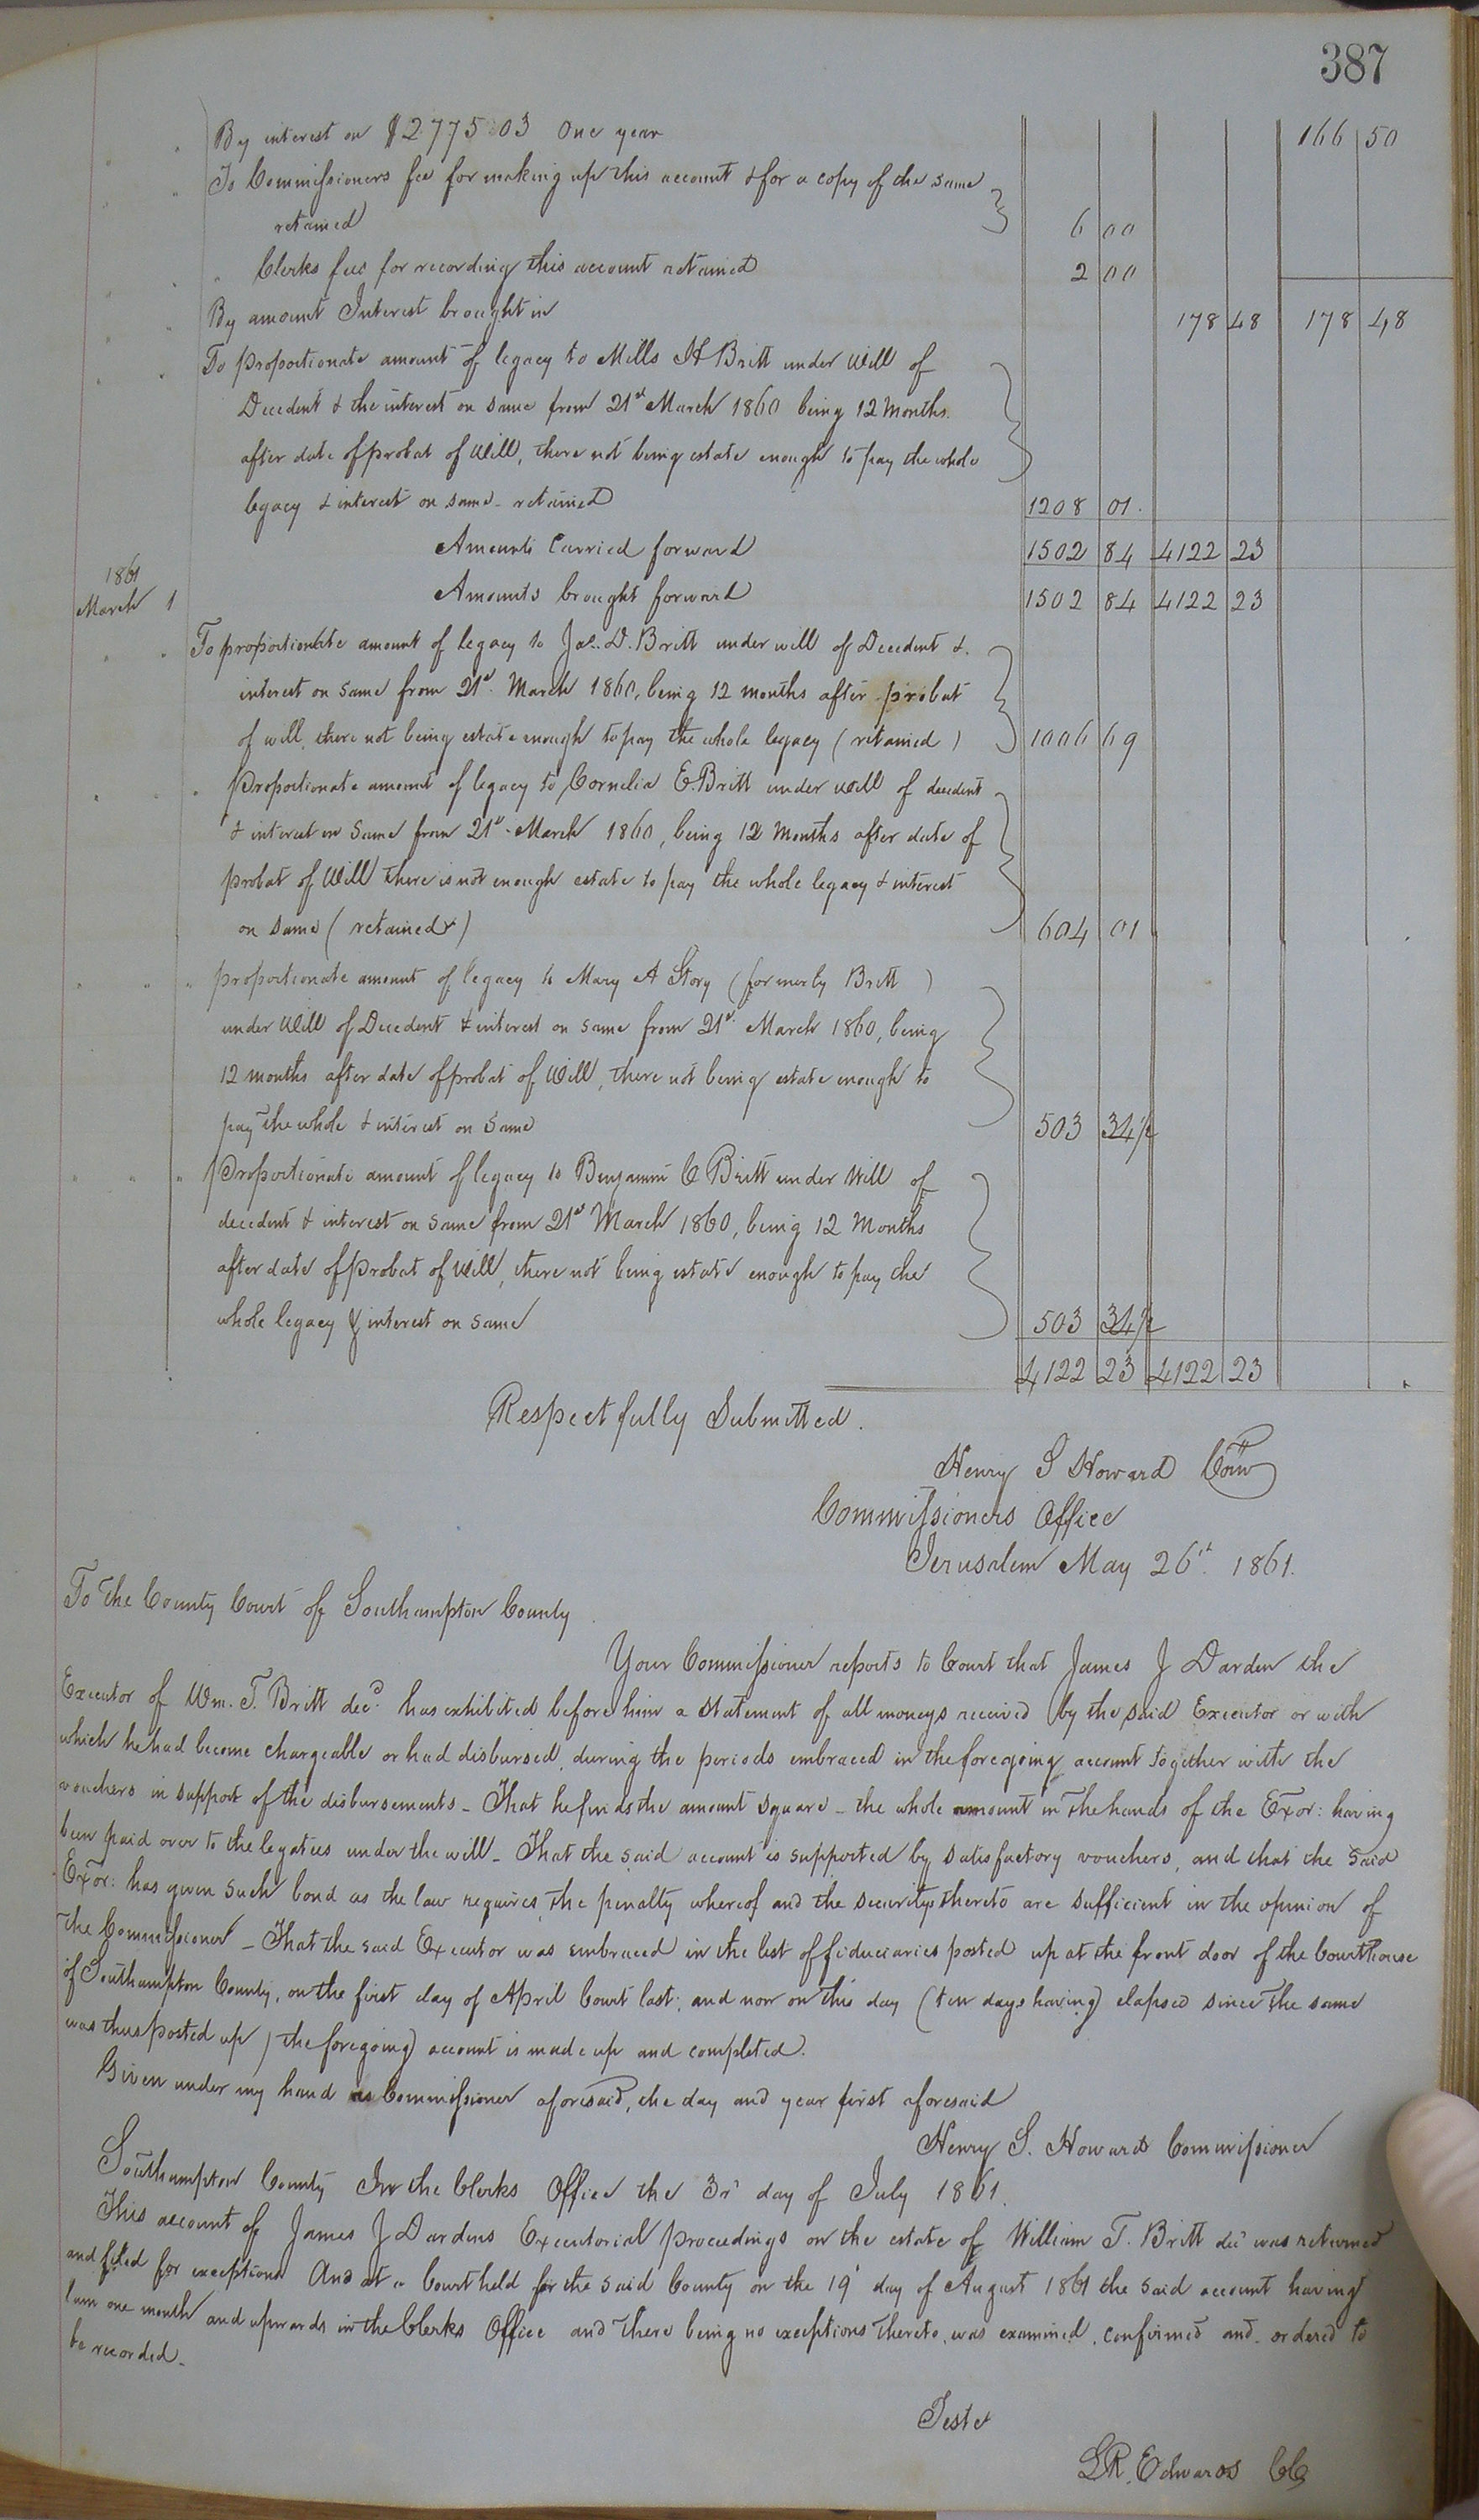 387
By interest on $2775.03 One year 166 50
To Commissioners fee for making up this account & for a copy of the same
retained 6 00
Clerks fees for recording this account retained 2 00
By amount Interest brought in 178 48 178 48
To proportionate amount of legacy to Mills H Britt under Will of
Decedent & the interest on same from 21st March 1860 being 12 Months
after date of probat of Will, there not being estate enough to pay the whole
legacy & interest on same - retained 1208 01
Amounts Carried forward 1502 84 4122 23
1861
March 1 Amounts brought forward 1502 84 4122 23
To proportionate amount of legacy to Jas. D. Britt under will of Decedent &
interest on same from 21st March 1860, being 12 months after probat
of will, there not being estate enough to pay the whole legacy (retained) 1006 69
" " Proportionate amount of legacy to Cornelia E. Britt under will of decedent
& interest on same from 21st March 1860, being 12 Months after date of
probat of Will there is not enough estate to pay the whole legacy & interest
on same (retained) 604 01
" " " proportionate amount of legacy to Mary A Story (formerly Britt)
under Will of Decedent & interest on same from 21st March 1860, being
12 months after date of probat of Will, there not being estate enough to
pay the whole & interest on same 503 34½
" " " Proportionate amount of legacy to Benjamin C Britt under Will of
decedent & interest on same from 21st March 1860, being 12 Months
after date of probat of Will, there not being estate enough to pay the
whole legacy & interest on same 503 34½
4122 23 4122 23
Respectfully Submitted.
Henry S Howard Comr
Commissioners Office
Jerusalem May 26th 1861.
To the County Court of Southampton County
Your Commissioner reports to Court that James J Darden the
Executor of Wm. T. Britt decd. has exhibited before him a statement of all moneys received by the said Executor or with
which he had become chargeable or had disbursed, during the periods embraced in the foregoing account together with the
vouchers in support of the disbursements - That he finds the amount square - the whole amount in the hands of the Exor: having
been paid over to the legatees under the will - That the said account is supported by satisfactory vouchers, and that the said
Exor: has given such bond as the law requires, the penalty whereof and the securitys thereto are sufficient in the opinion of
the Commissioner - That the said Executor was embraced in the list of fiduciaries posted up at the front door of the Courthouse
of Southampton County, on the first day of April Court last; and now on this day (ten days having) elapsed since the same
was thus posted up) the foregoing account is made up and completed.
Given under my hand as Commissioner aforesaid, the day and year first aforesaid
Henry S. Howard Commissioner
Southampton County In the Clerks Office the 3rd day of July 1861.
This account of James J Dardens Executorial proceedings on the estate of William T. Britt decd was returned
and filed for exceptions And at a Court held for the said County on the 19th day of August 1861 the said account having
lain one month and upwards in the Clerks Office and there being no exceptions thereto, was examined, confirmed and ordered to
be recorded.
Teste
L.R. Edwards CC